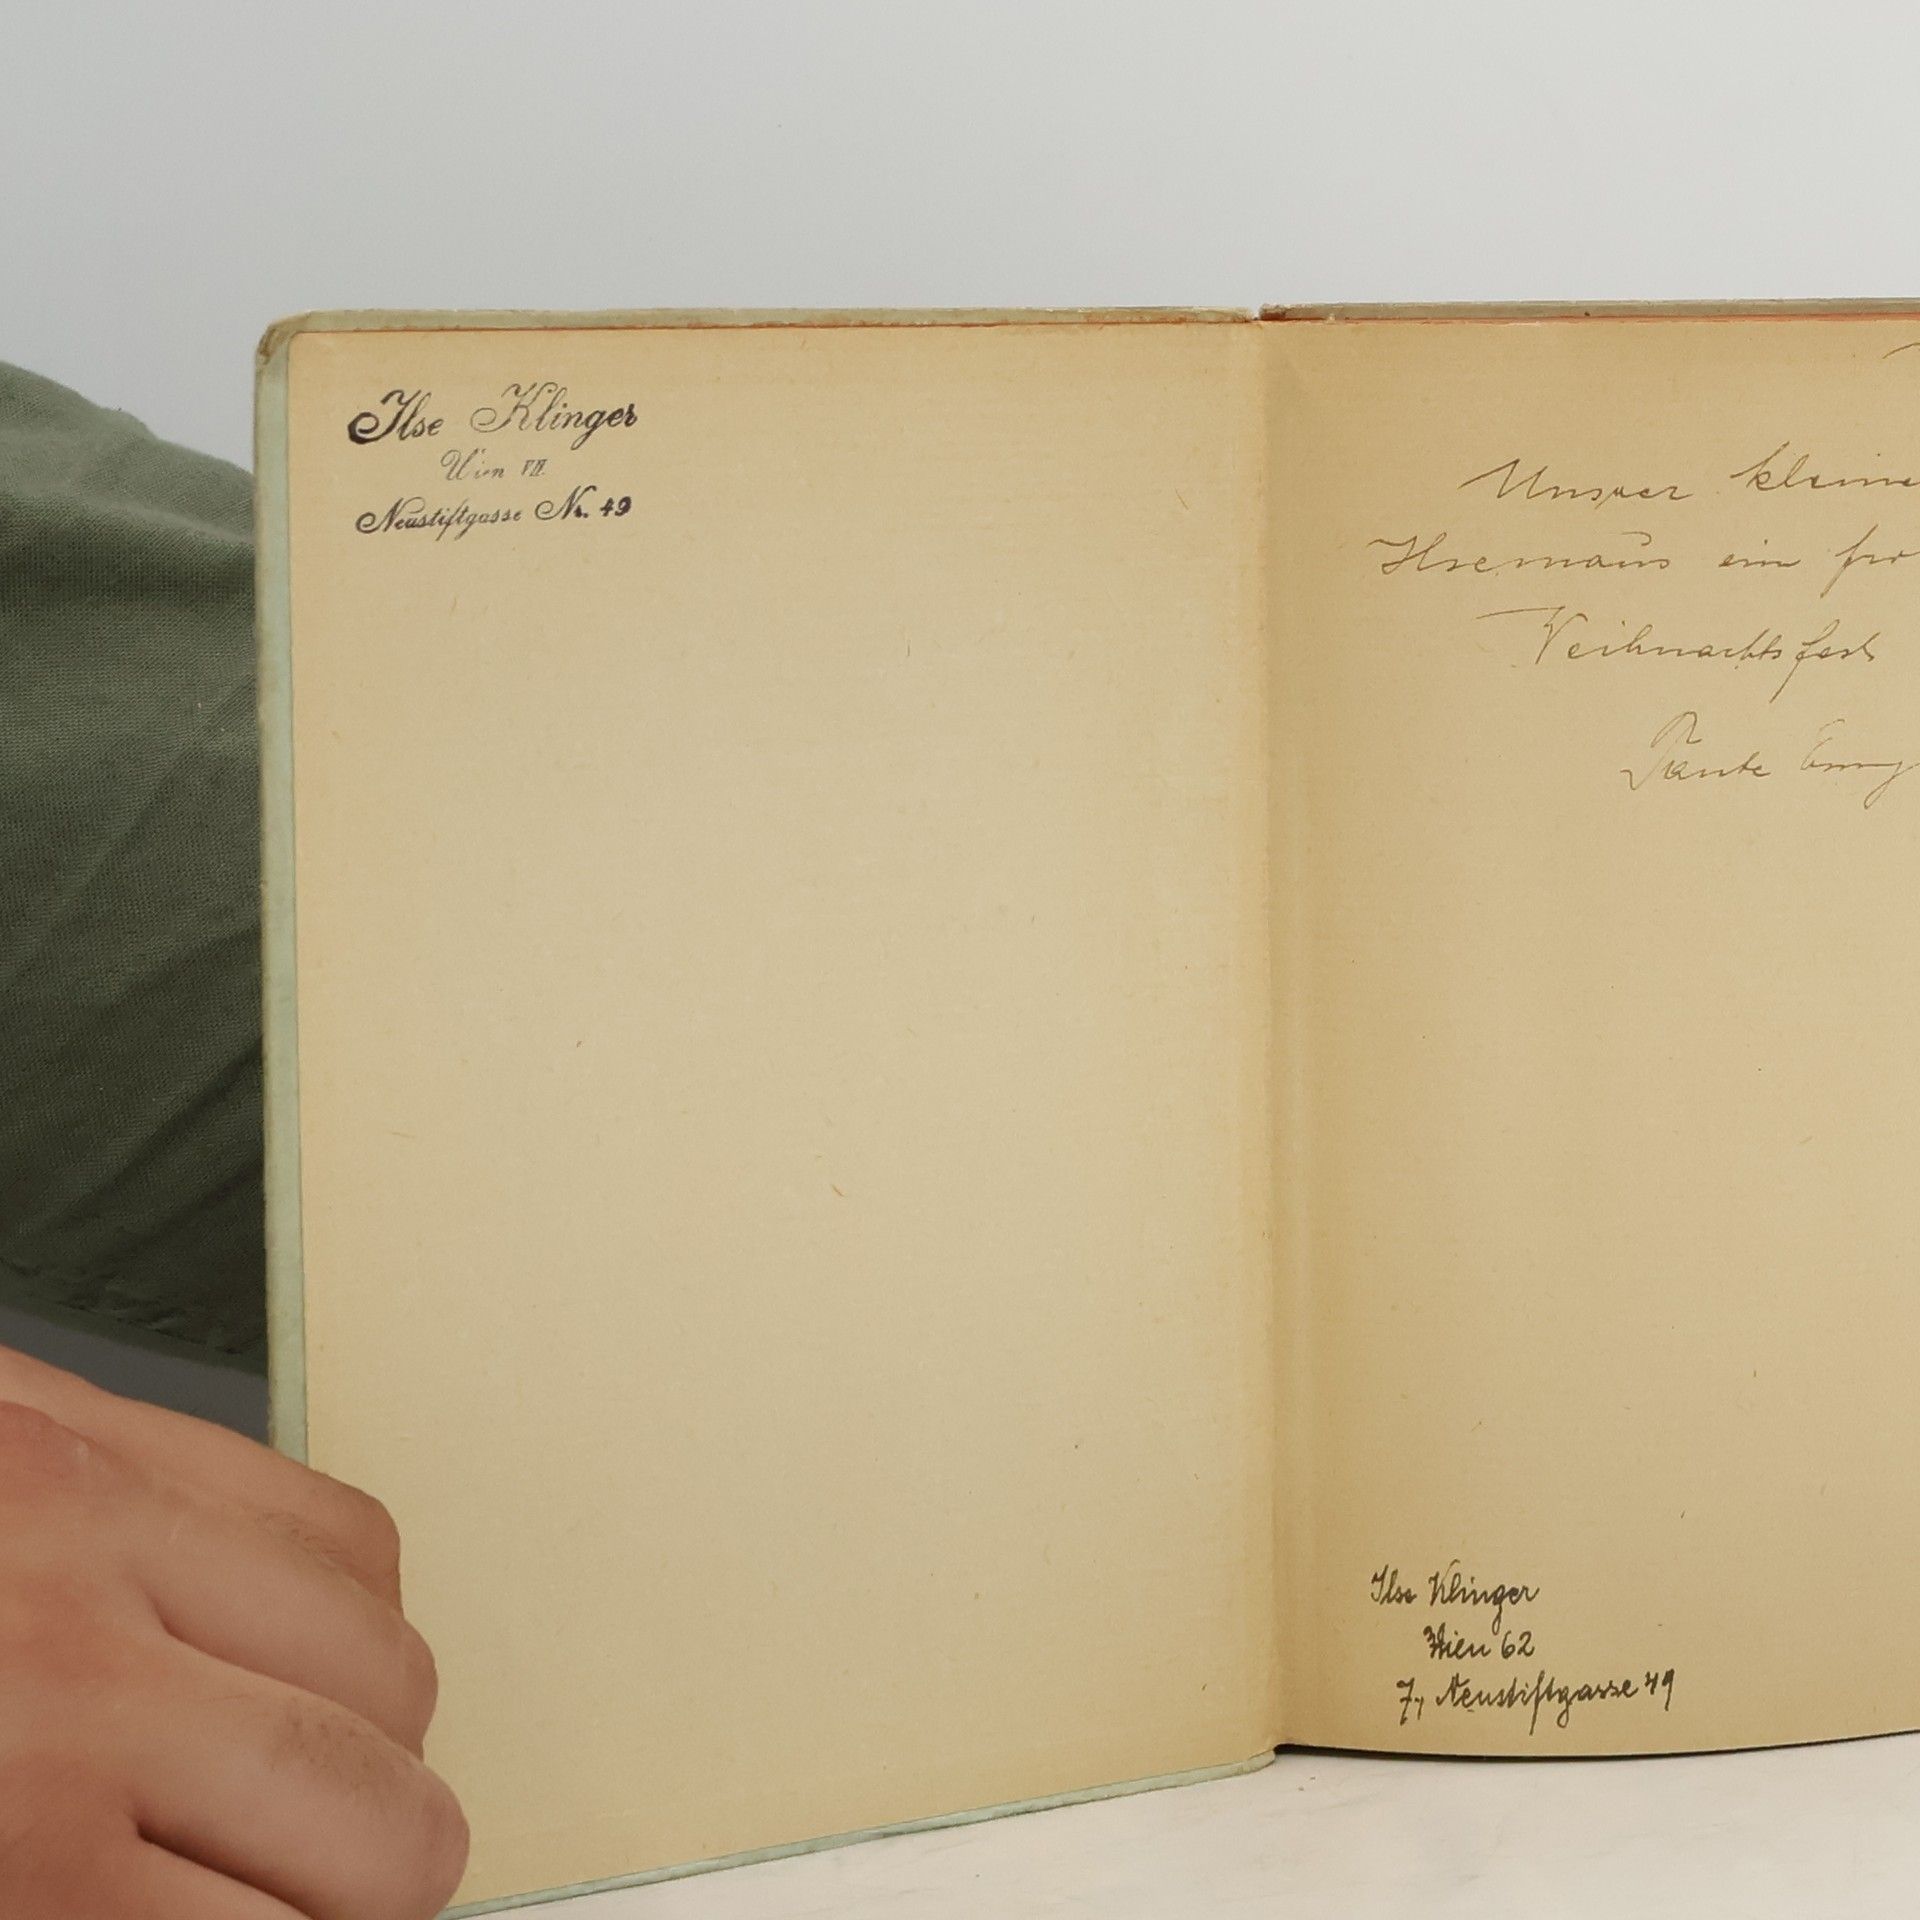 Ilse Klinger
Wien VII.
Neustiftgasse Nr. 49
Unsrer kleine
Ilsemaus ein fro
Weihnachtsfest
Tante Emmy
Ilse Klinger
Wien 62
7, Neustiftgasse 49